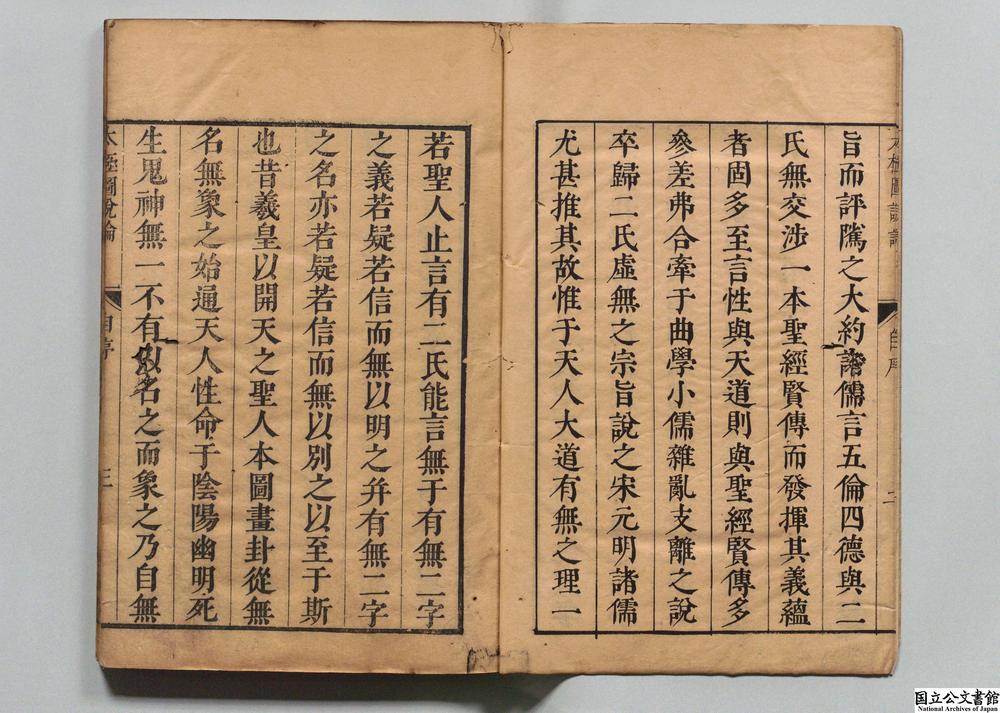 太極圖說論
自序
二
旨而評隲之大約諸儒言五倫四德與二
氏無交涉一本聖經賢傳而發揮其義蘊
者固多至言性與天道則與聖經賢傳多
參差弗合牽于曲學小儒雜亂支離之說
卒歸二氏虛無之宗旨說之宋元明諸儒
尤甚推其故惟于天人大道有無之理一
若聖人止言有二氏能言無于有無二字
之義若疑若信而無以明之并有無二字
之名亦若疑若信而無以別之以至于斯
也昔羲皇以開天之聖人本圖畫卦從無
名無象之始通天人性命于陰陽幽明死
生鬼神無一不有以名之而象之乃自無
太極圖說論
自序
三
国立公文書館
National Archives of Japan